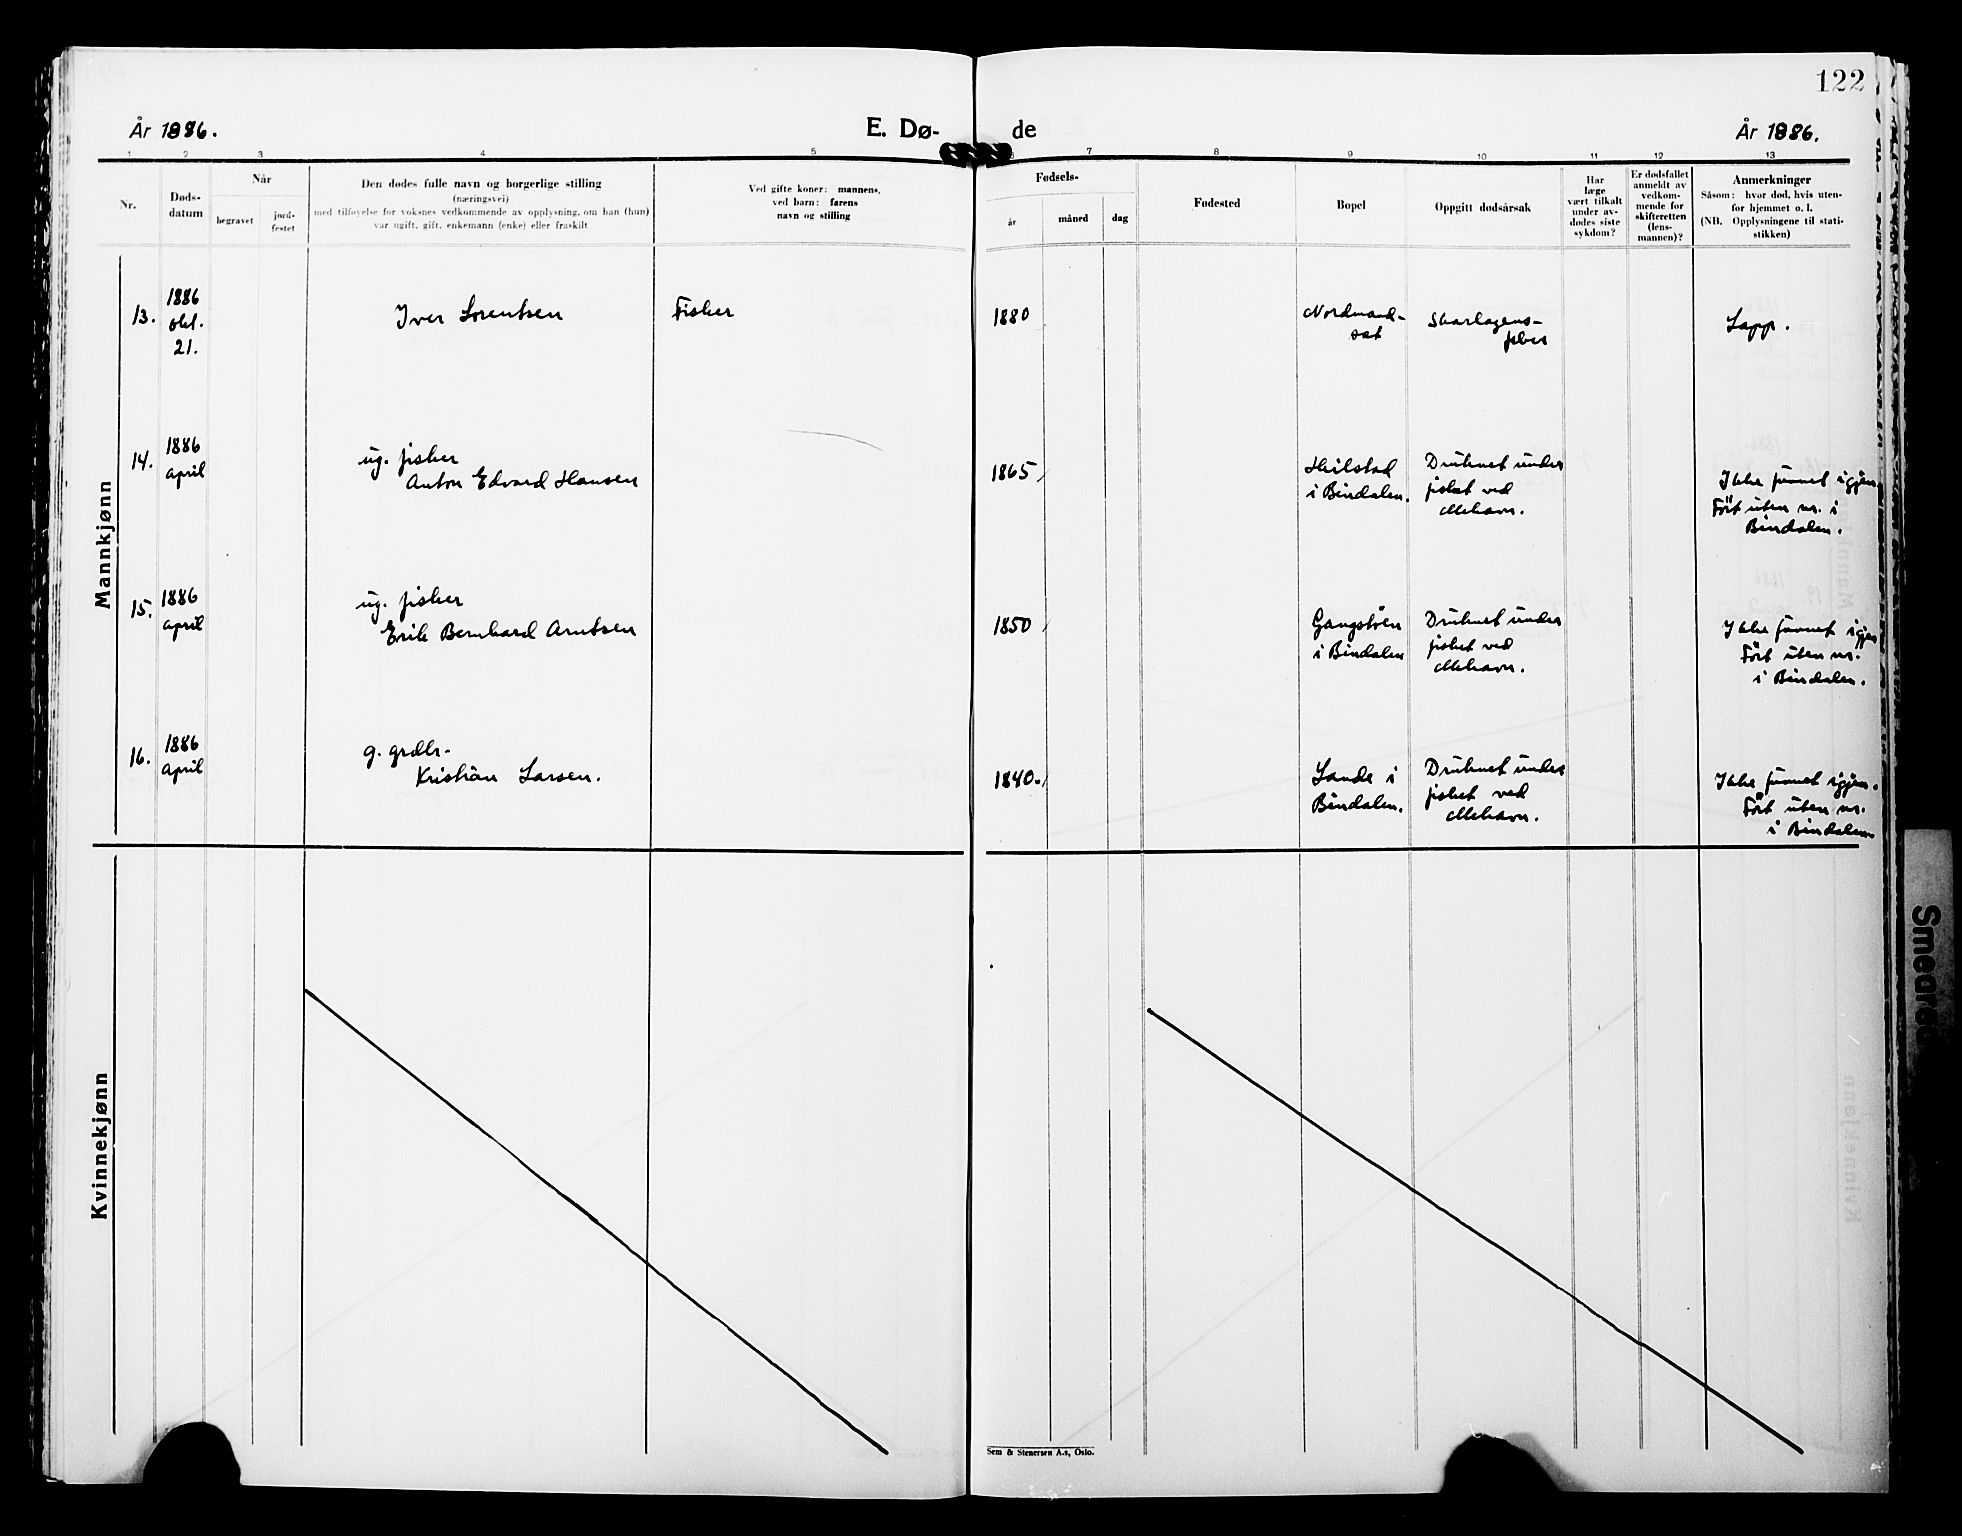 122
År 1886.
E. Dø-
de
År 1886.
1 2 3 4 5 6 7 8 9 10 11 12 13
Nr.
Døds-
datum
Når
begravet
jord-
festet
Den dødes fulle navn og borgerlige stilling
(næringsvei)
med tilføyelse for voksnes vedkommende av opplysning, om han (hun)
var ugift, gift, enkemann (enke) eller fraskilt
Ved gifte koner: mannens,
ved barn: farens
navn og stilling
Fødsels-
år
måned
dag
Fødested
Bopel
Oppgitt dødsårsak
Har
læge
vært tilkalt
under av-
dødes siste
sykdom?
Er dødsfallet
anmeldt av
vedkom-
mende for
skifteretten
(lens-
mannen)?
Anmerkninger
Såsom: hvor død, hvis uten-
for hjemmet o. l.
(NB. Opplysningene til stati-
stikken)
Mannkjønn
13.
1886
okt.
21.
Iver Lorentsen
Fisker
1880
Nordmand-
set
Skarlagens-
feber
Lapp.
14.
1886
april
ug. fisker
Anton Edvard Hansen
1865
Heilstad
i Bindalen.
Druknet under
fisket ved
Mehavn.
Ikke funnet igjen
Ført uten nr. i
Bindalen.
15.
1886
april
ug. fisker
Erik Bernhard Arntsen
1850
Gangstøen
i Bindalen
Druknet under
fisket ved
Mehavn.
Ikke funnet igjen
Ført uten nr.
i Bindalen.
16.
1886
april
g. grdbr.
Kristian Larsen.
1840.
Lande i
Bindalen.
Druknet under
fisket ved
Mehavn.
Ikke funnet igjen.
Ført uten nr.
i Bindalen
Kvinnekjønn
Sem & Stenersen A.s, Oslo.